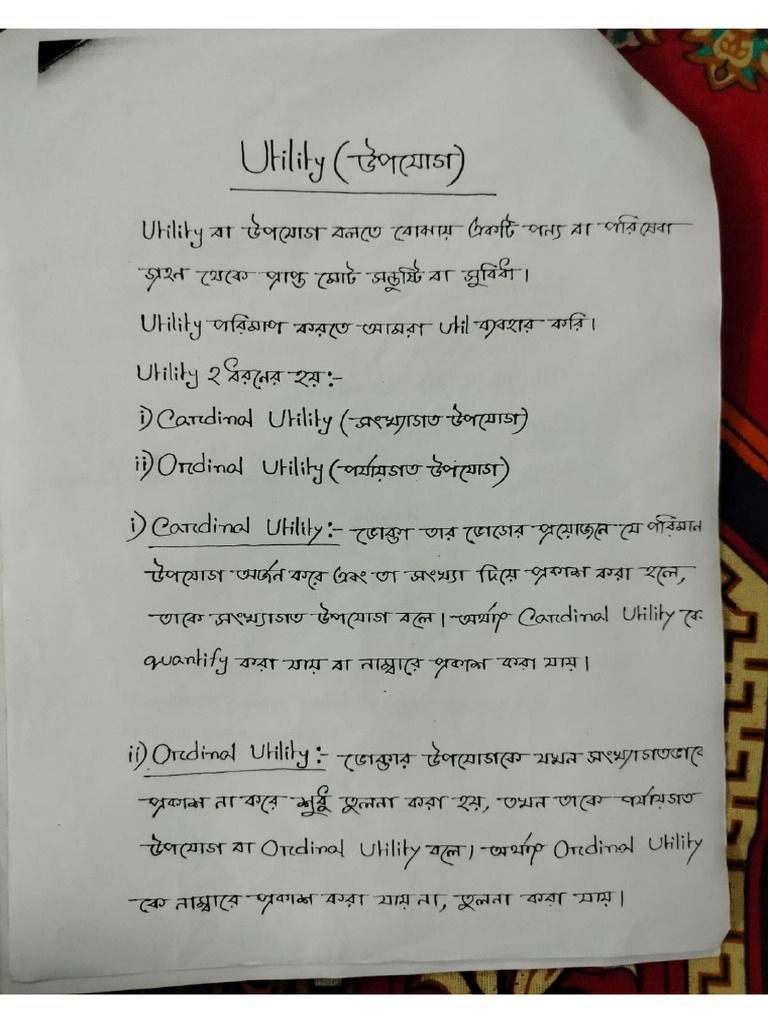 Utility (উপযোগ)
Utility বা উপযোগ বলতে বোঝায় একটি পন্য বা পরিষেবা
গ্রহন থেকে প্রাপ্ত মোট সন্তুষ্টি বা সুবিধা।
Utility পরিমাপ করতে আমরা util ব্যবহার করি।
Utility ২ ধরনের হয়:-
i) Cardinal Utility (সংখ্যাগত উপযোগ)
ii) Ordinal Utility (পর্যায়গত উপযোগ)
i) Cardinal Utility:- ভোক্তা তার ভোগের প্রয়োজনে যে পরিমান
উপযোগ অর্জন করে এবং তা সংখ্যা দিয়ে প্রকাশ করা হলে,
তাকে সংখ্যাগত উপযোগ বলে। অর্থাৎ Cardinal Utility কে
quantify করা যায় বা নাম্বারে প্রকাশ করা যায়।
ii) Ordinal Utility:- ভোক্তার উপযোগকে যখন সংখ্যাগতভাবে
প্রকাশ না করে শুধু তুলনা করা হয়, তখন তাকে পর্যায়গত
উপযোগ বা Ordinal Utility বলে। অর্থাৎ Ordinal Utility
কে নাম্বারে প্রকাশ করা যায় না, তুলনা করা যায়।